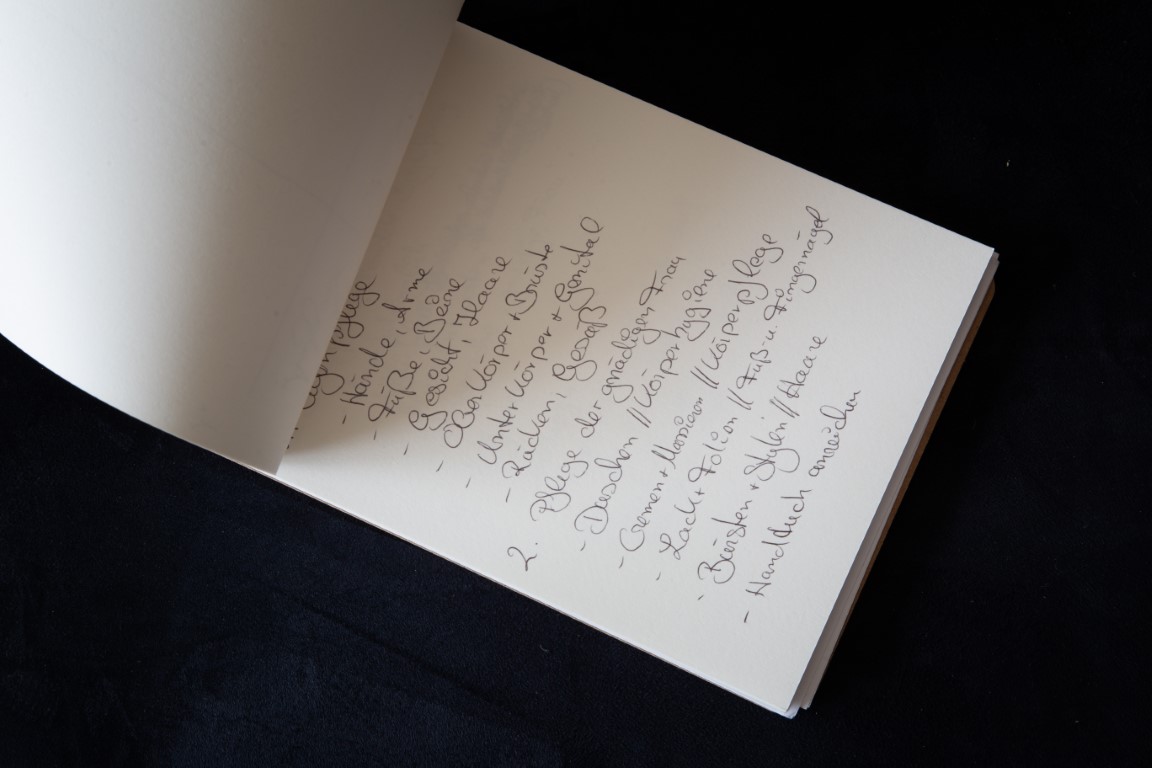 - Hände, Arme
- Füße, Beine
- Gesicht, Haare
- Oberkörper + Brüste
- Unterkörper + Genital
- Rücken, Gesäß
2. Pflege der gnädigen Frau
- Duschen // Körperhygiene
- Cremen + Massieren // Körperpflege
- Lack + Folien // Fuß- u. Fingernägel
- Bürsten + Stylen // Haare
- Handtuch anreichen